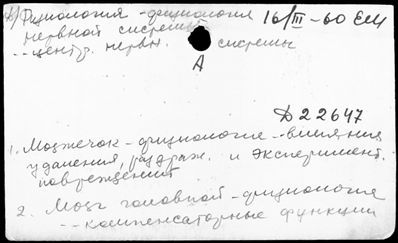 Физиология - физиология 16/III-60 ЕМ
нервной системы
-- центр. нервн. системы
А
Д22647
1. Мозжечок - физиология -- влияния
удаления, раздраж. и эксперимент.
повреждений
2. Мозг головной - физиология
-- компенсаторные функции